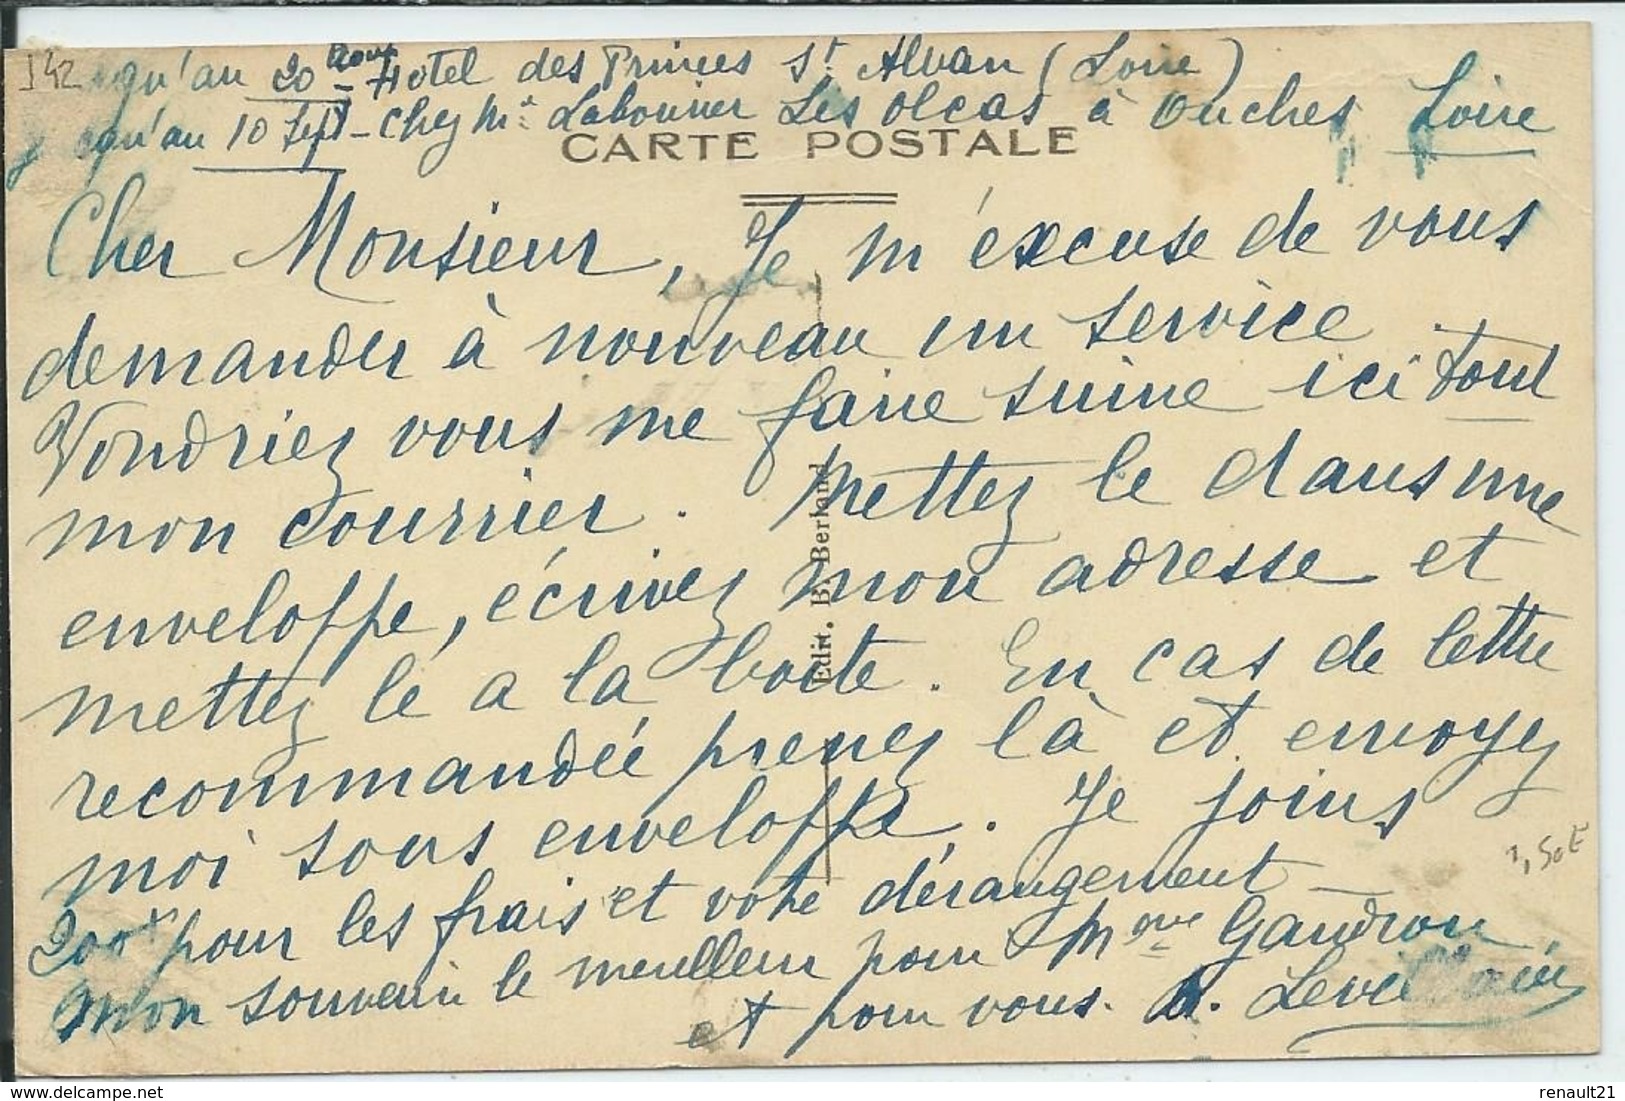 J42
jusqu'au 20 aout - Hotel des Princes St Alban (Loire)
jusqu'au 10 Sept - chez Mr Labouiver Les Olcas à Ouches Loire
CARTE POSTALE
Cher Monsieur, Je m'excuse de vous
demander à nouveau un service.
Voudriez vous me faire suivre ici tout
mon courrier. Mettez le dans une
enveloppe, écrivez mon adresse et
mettez le a la boite. En cas de lettre
recommandée prenez là et envoyez
moi sous enveloppe. Je joins
200 F pour les frais et votre dérangement -
mon souvenir le meilleur pour Mme Gaudron
et pour vous.
Edit. B. Berland
1,50E
renault21